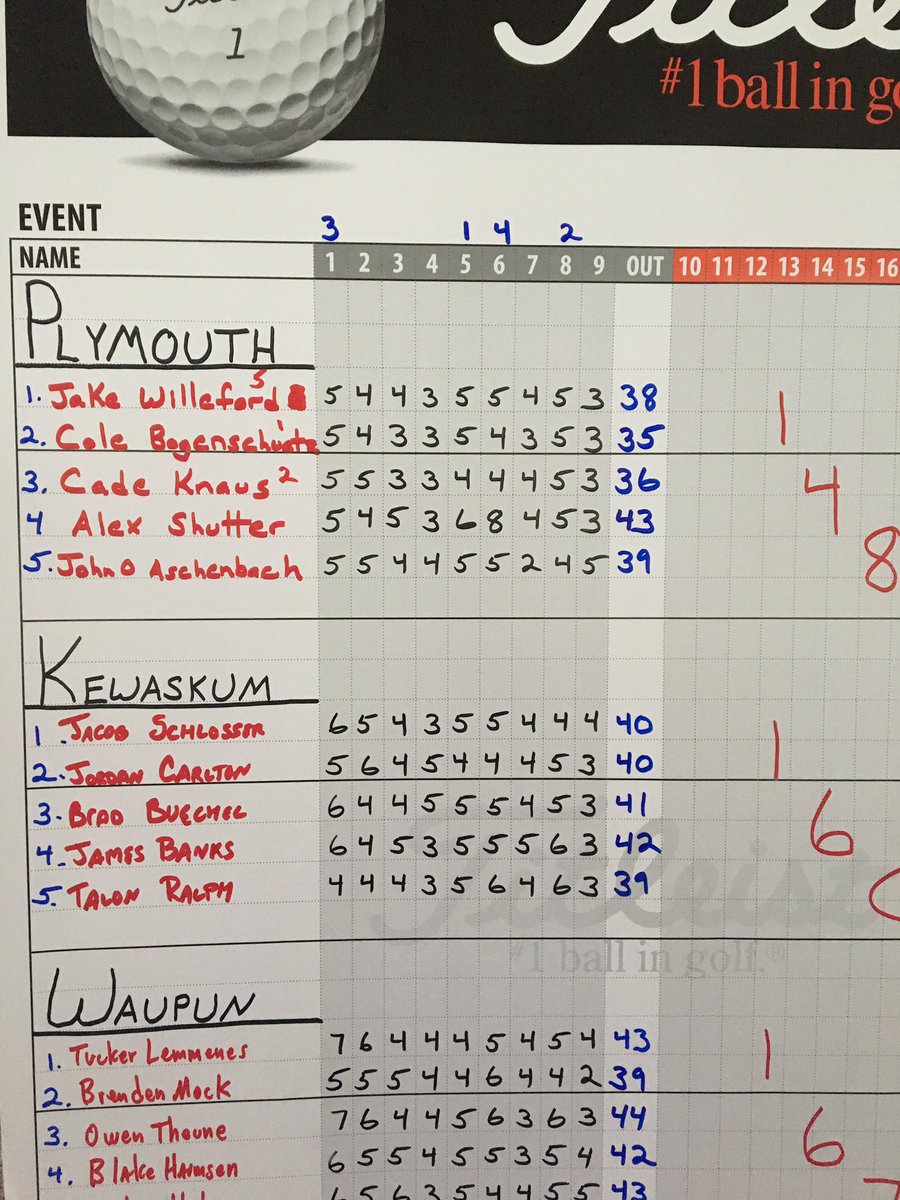 1
Titleist
#1 ball in go
EVENT
3 1 4 2
NAME 1 2 3 4 5 6 7 8 9 OUT 10 11 12 13 14 15 16
PLYMOUTH
1. Jake Willeford 5 5 4 4 3 5 5 4 5 3 38
2. Cole Bogenschuetz 1 5 4 3 3 5 4 3 5 3 35
3. Cade Knaus 2 5 5 3 3 4 4 4 5 3 36
4 Alex Shutter 5 4 5 3 6 8 4 5 3 43
5. John O Aschenbach 5 5 4 4 5 5 2 4 5 39
1
4
8
KEWASKUM
1. JACOB SCHLOSSER 6 5 4 3 5 5 4 4 4 40
2. JORDAN CARLTON 5 6 4 5 4 4 4 5 3 40
3. BRAD BUECHEL 6 4 4 5 5 5 4 5 3 41
4. JAMES BANKS 6 4 5 3 5 5 5 6 3 42
5. TALON RALPH 4 4 4 3 5 6 4 6 3 39
1
6
Titleist
#1 ball in golf.®
WAUPUN
1. Tucker Lemmenes 7 6 4 4 4 5 4 5 4 43
2. Brenden Mock 5 5 5 4 4 6 4 4 2 39
3. Owen Thoune 7 6 4 4 5 6 3 6 3 44
4. Blake Harmsen 6 5 5 4 5 5 3 5 4 42
6 5 6 3 5 4 4 5 5 43
1
6
7